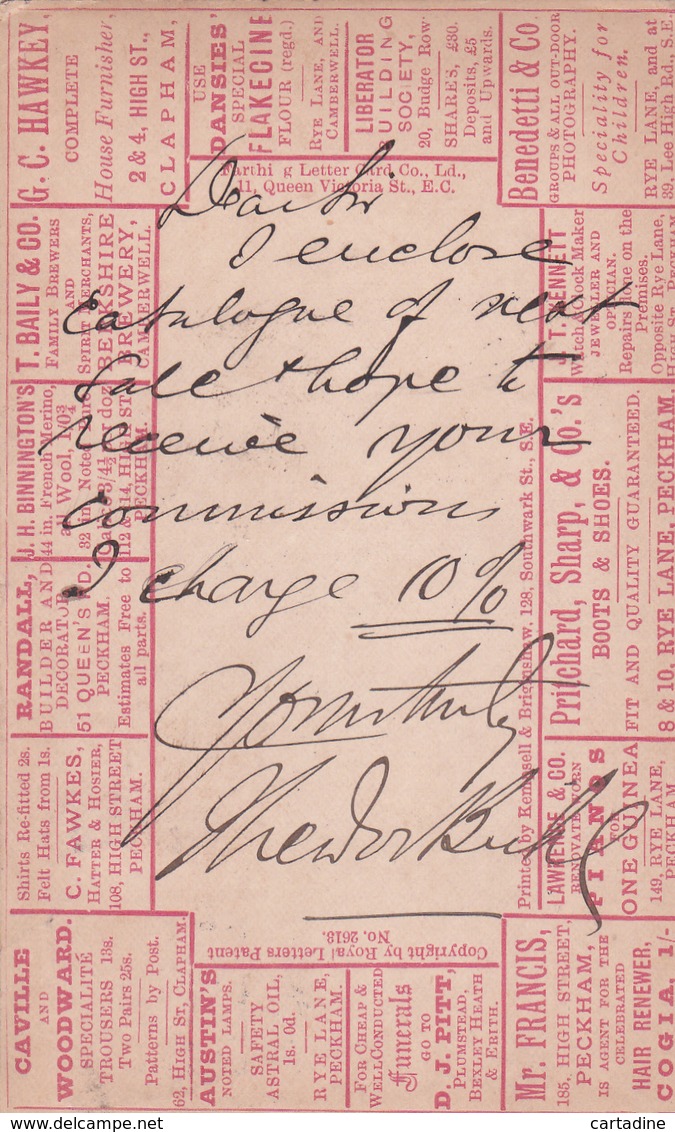 G. C. HAWKEY,
COMPLETE
House Furnisher,
2 & 4, HIGH ST.,
CLAPHAM,
USE
DANSIES'
SPECIAL
FLAKECINE
FLOUR (regd.)
RYE LANE, AND
CAMBERWELL.
LIBERATOR
BUILDING
SOCIETY,
20, Budge Row
SHARES, £30.
Deposits, £5
and Upwards.
Benedetti & Co
GROUPS & ALL OUT-DOOR
PHOTOGRAPHY.
Speciality for
Children.
RYE LANE, and at
39, Lee High Rd., S.E.
Farthing Letter Card Co., Ld.,
11, Queen Victoria St., E.C.
T. BAILY & CO.
FAMILY BREWERS
AND
SPIRIT MERCHANTS,
BERKSHIRE
BREWERY,
CAMBERWELL.
J. H. BINNINGTON'S
44 in. French Merino,
112 & 114, HIGH ST
PECKHAM.
RANDALL,
BUILDER AND
DECORATOR
51 QUEEN'S RD.
PECKHAM
Estimates Free to
all parts.
Shirts Re-fitted 2s.
Felt Hats from 1s.
C. FAWKES,
HATTER & HOSIER,
108, HIGH STREET
PECKHAM.
Dear Sir
I enclose
Catalogue of next
Sale & hope to
receive your
commissions
I charge 10%
Yours truly
J. T. BENNETT
Watch & Clock Maker
JEWELLER AND
OPTICIAN.
Repairs done on the
Premises.
Opposite Rye Lane,
HIGH ST. PECKHAM
Pritchard, Sharp, & Co.'s
BOOTS & SHOES.
FIT AND QUALITY GUARANTEED.
8 & 10, RYE LANE, PECKHAM.
Printed by Kemsell & Brightshaw, 128, Southwark St., S.E.
LAWRENCE & CO.
RENOVATE WORN
PIANOS
FOR
ONE GUINEA
149, RYE LANE,
PECKHAM
CAVILLE
AND
WOODWARD.
SPECIALITÉ
TROUSERS 13s.
Two Pairs 25s.
Patterns by Post.
62, HIGH ST, CLAPHAM.
Copyright by Royal Letters Patent
No. 2613.
AUSTIN'S
NOTED LAMPS.
SAFETY
ASTRAL OIL,
1s. 0d.
RYE LANE,
PECKHAM.
FOR CHEAP &
WELL CONDUCTED
Funerals
GO TO
D. J. PITT,
PLUMSTEAD,
BEXLEY HEATH
& ERITH.
Mr. FRANCIS,
185, HIGH STREET,
PECKHAM,
IS AGENT FOR THE
CELEBRATED
HAIR RENEWER,
COGIA, 1/-
cartadine